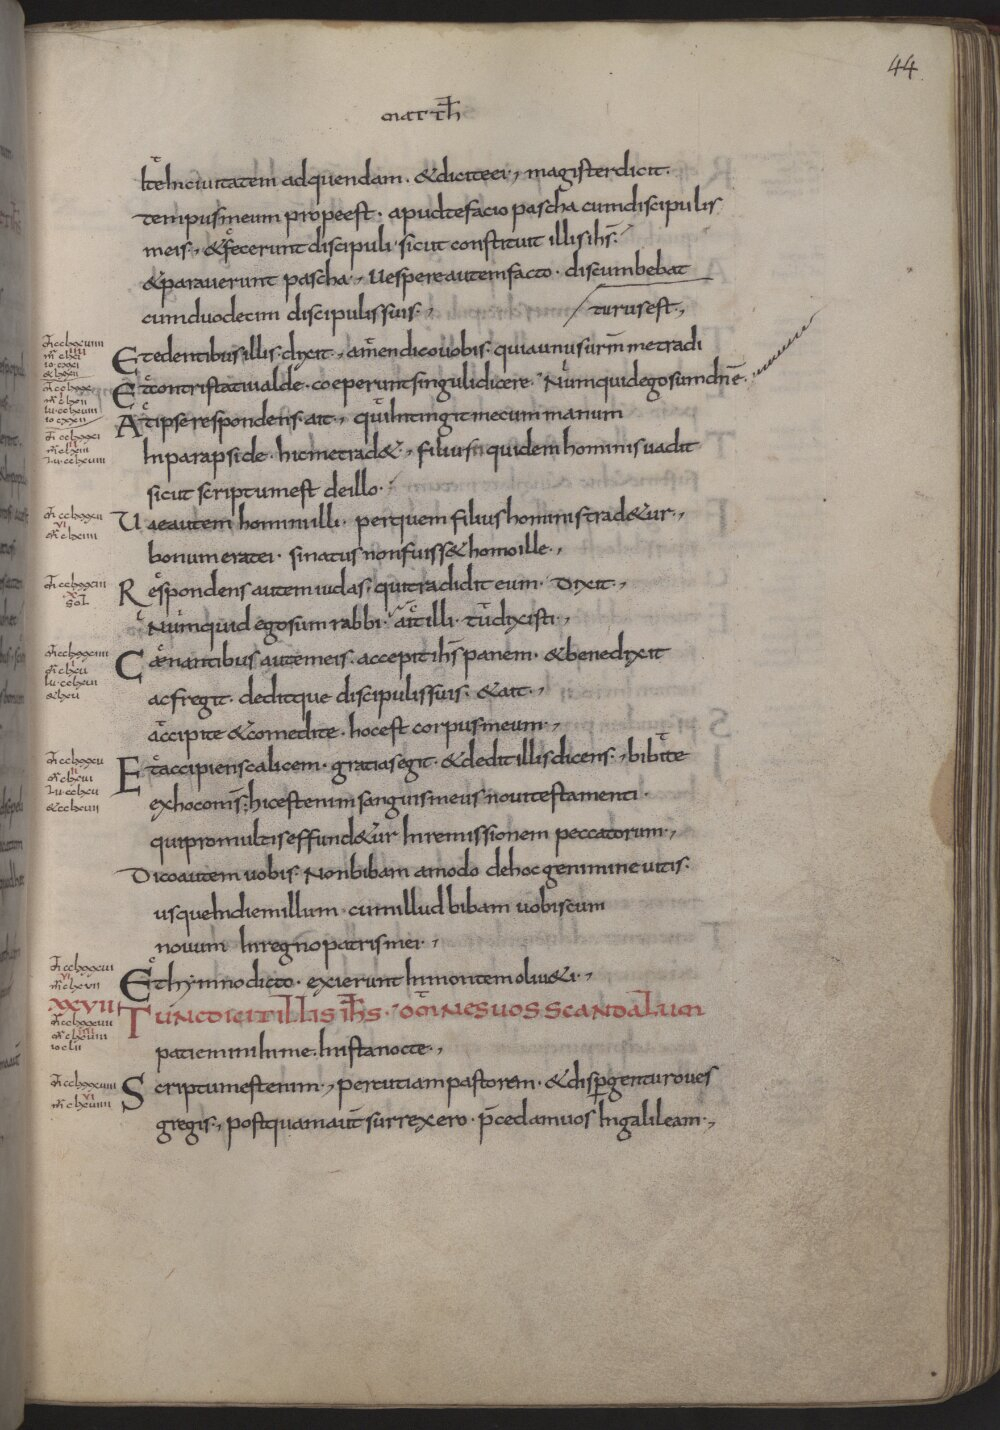 44
MATTH
Ite in ciuitatem ad quendam. & dicite ei, magister dicit.
tempus meum prope est. apud te facio pascha cum discipulis
meis, & fecerunt discipuli sicut constituit illis ihs.
& parauerunt pascha, Uespere autem facto. discumbebat
cum duodecim discipulis suis.,
turus est.,
Et edentibus illis. dixit, amen dico uobis. quia unus urm me tradi
Et contristati ualde. coeperunt singuli dicere. Numquid ego sum dne.
At ipse respondens. ait, qui intingit mecum manum
In parapside. hic me trad&, filius quidem hominis uadit
sicut scriptum est de illo.
Uae autem homini illi. per quem filius hominis trad&ur.,
bonum erat ei. si natus non fuiss& homo ille.,
Respondens autem iudas. qui tradidit eum. Dixit.,
Numquid ego sum rabbi. ait illi. tu dixisti.,
Caenantibus autem eis. accepit ihs panem. & benedixit
ac fregit. deditque discipulis suis. & ait.,
accipite & comedite. hoc est corpus meum.,
Et accipiens calicem. gratias egit. & dedit illis dicens., bibite
ex hoc oms. hic est enim sanguis meus noui testamenti.
qui pro multis effund&ur In remissionem peccatorum.,
Dico autem uobis. Non bibam amodo de hoc genimine uitis.
usque In diem illum. cum illud bibam uobiscum
nouum In regno patris mei.,
Et hymno dicto. exierunt In montem oliu&i.,
XXVII
TUNC DICIT ILLIS IHS. OMNES UOS SCANDALUM
patiemini In me. In ista nocte.,
Scriptum est enim., percutiam pastorem. & dispgentur oues
gregis., postquam aut surrexero. pcedam uos In galileam.,